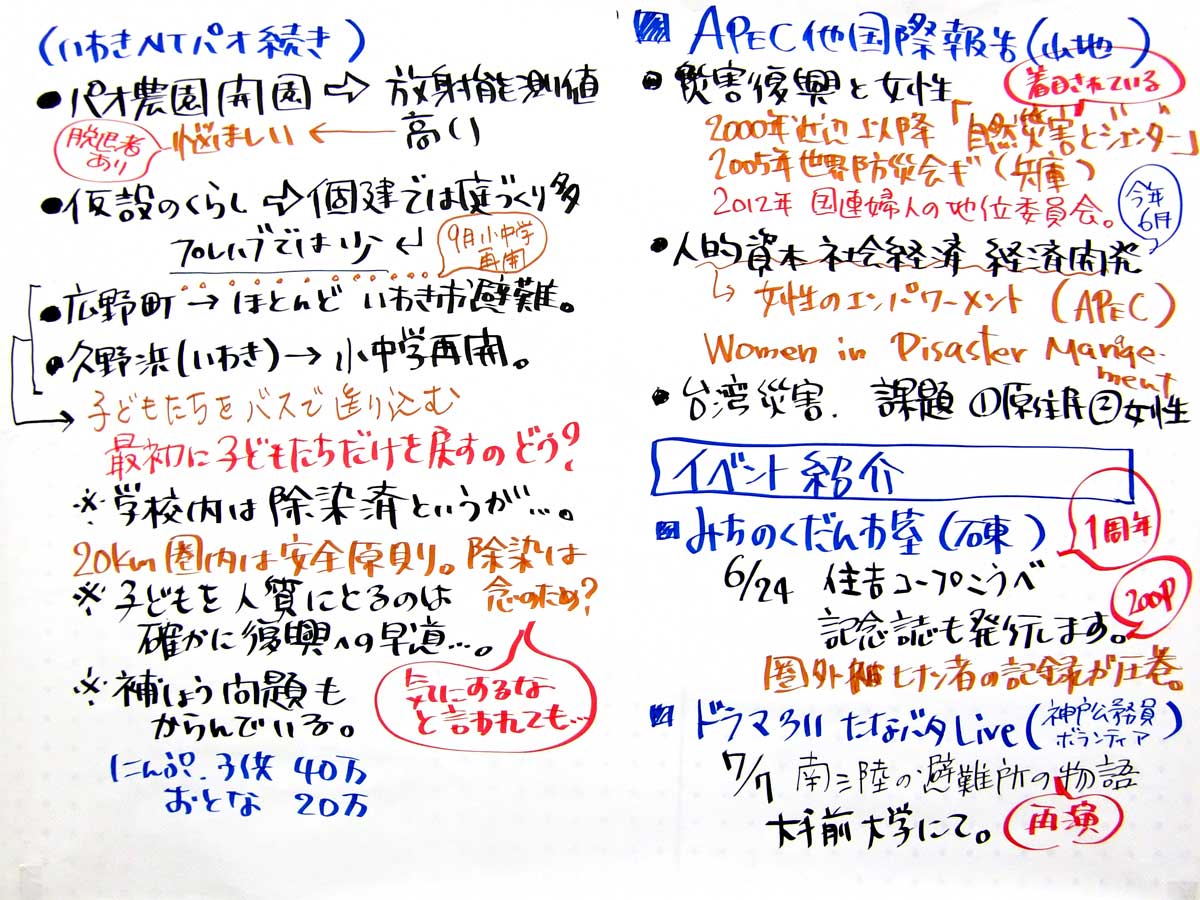 (いわきNTパオ続き)
●パオ農園開園⇨放射能測値
高い
←悩ましい
脱退者
あり
●仮設のくらし⇨個建では庭づくり多
プレハブでは少
9月小中学
再開
●広野町→ほとんどいわき市避難。
●久野浜(いわき)→小中学再開。
→子どもたちをバスで送り込む
最初に子どもたちだけを戻すのどう?
※学校内は除染済というが…。
20km圏内は安全原則。除染は
念のため?
※子どもを人質にとるのは
確かに復興への早道…。
気にするな
と言われても…
※補しょう問題も
からんでいる。
にんぷ.子供 40万
おとな 20万
APEC他国際報告(山地)
●災害復興と女性
着目されている
2000年近辺以降「自然災害とジェンダー」
2005年世界防災会ギ(兵庫)
2012年国連婦人の地位委員会。
今年
6月
●人的資本 社会経済 経済開発
↳女性のエンパワーメント(APEC)
Women in Disaster Manage-
ment
●台湾災害. 課題①原住民②女性
イベント紹介
みちのくだんわ室(石東)
1周年
6/24 住吉コープこうべ
記念誌も発行します。
200P
圏外被サイ者の記録が圧巻。
ドラマ311 たなバタLive(神戸公務員
ボランティア)
7/7 南三陸の避難所の物語
大手前大学にて。
再演